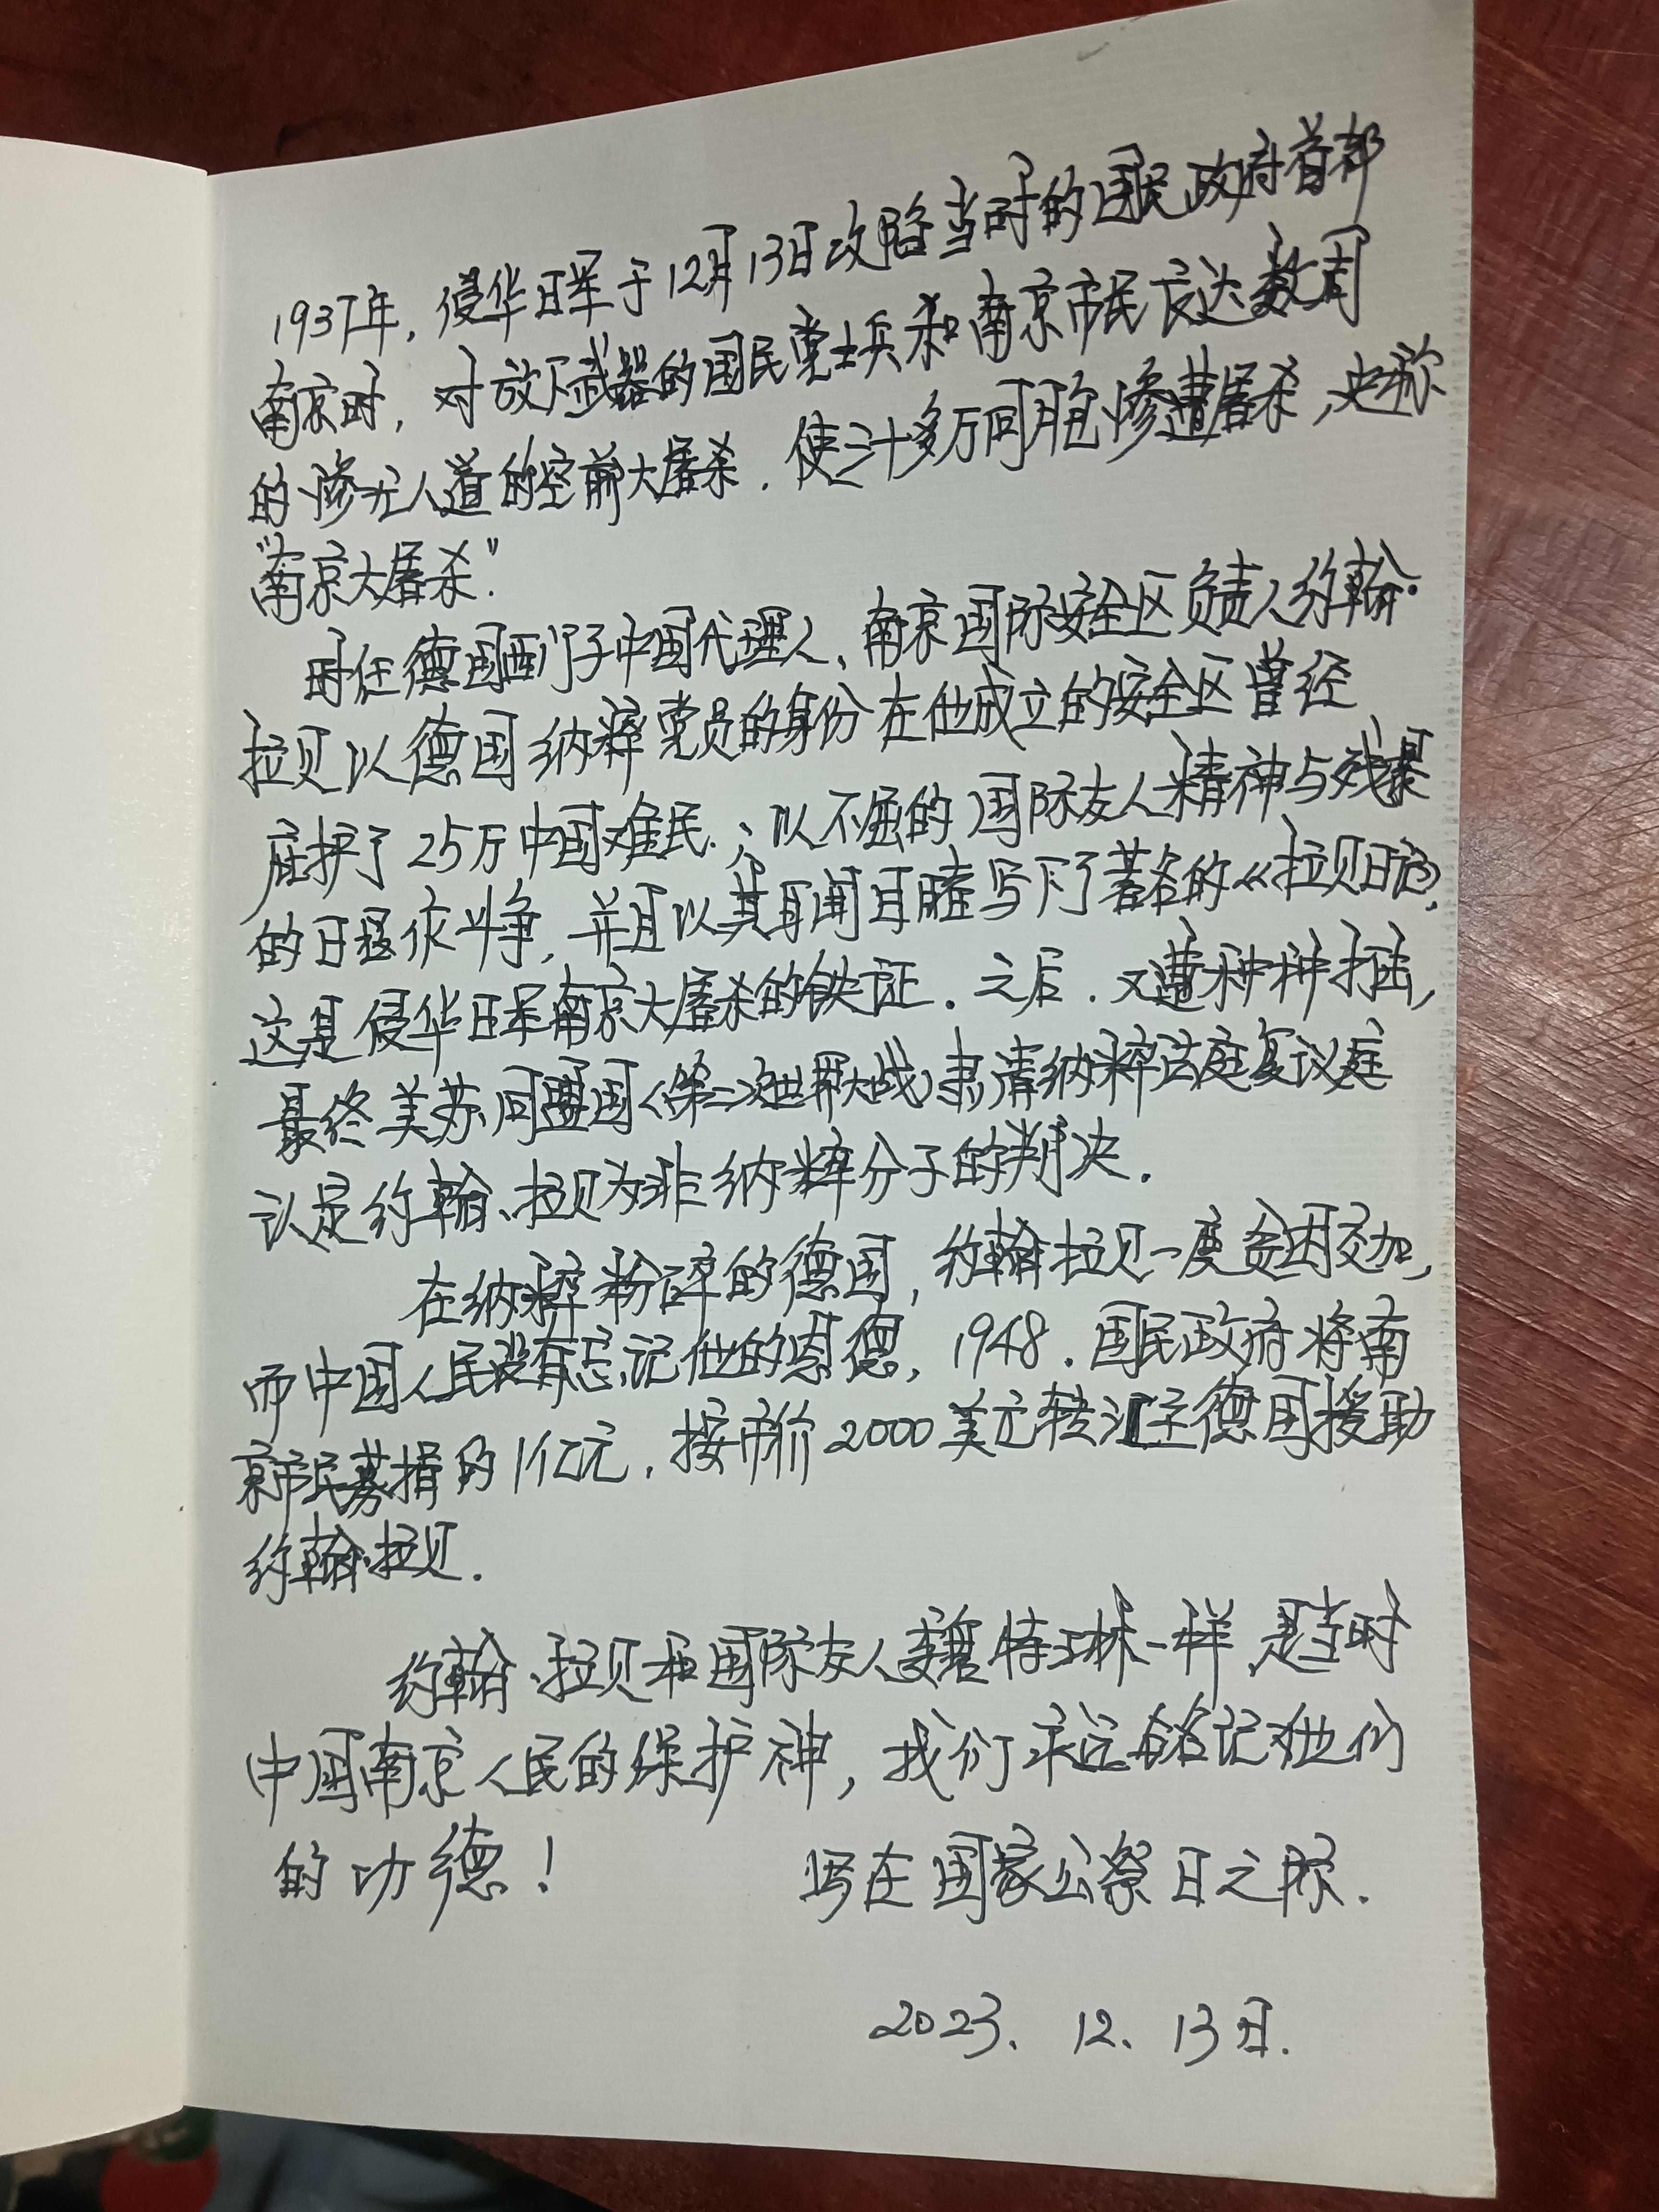 1937年，侵华日军于12月13日攻陷当时的国民政府首都
南京时，对放下武器的国民党士兵和南京市民长达数周
的惨无人道的空前大屠杀．使三十多万同胞惨遭屠杀，史称
“南京大屠杀”．
时任德国西门子中国代理人、南京国际安全区负责人约翰·
拉贝以德国纳粹党员的身份在他成立的安全区曾经
庇护了25万中国难民．；以不屈的国际友人精神与残暴
的日寇作斗争，并且以其耳闻目睹写下了著名的《拉贝日记》，
这是侵华日军南京大屠杀的铁证．之后．又遭种种打击，
最终美苏、同盟国（第二次世界大战）肃清纳粹法庭复议庭
认定约翰、拉贝为非纳粹分子的判决．
在纳粹粉碎的德国，约翰拉贝一度贫困交加，
而中国人民没有忘记他的恩德，1948．国民政府将南
京市民募捐的1亿元．按市价2000美元转汇至德国援助
约翰·拉贝．
约翰·拉贝和国际友人魏特琳一样，是当时
中国南京人民的保护神，我们永远铭记他们
的功德！ 写在国家公祭日之际．
2023．12．13日．